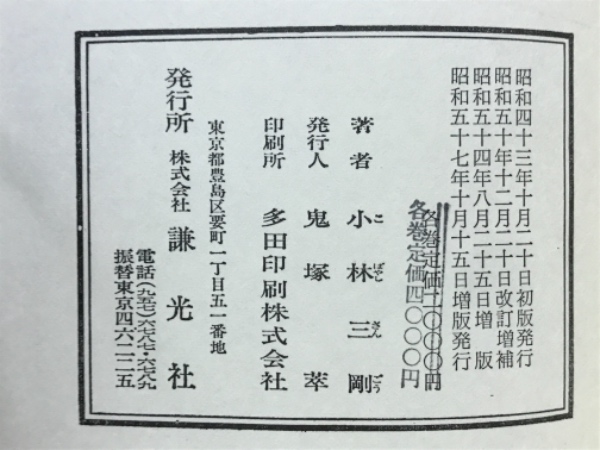 昭和四十三年十月二十日初版発行
昭和五十年十二月二十日改訂増補
昭和五十四年八月二十五日増版
昭和五十七年十月十五日増版発行
各巻定価二〇〇〇円
各巻定価四〇〇〇円
著者 小林三剛
こばやしさんごう
発行人 鬼塚萃
印刷所 多田印刷株式会社
東京都豊島区要町一丁目五一番地
発行所 株式会社 謙光社
電話(九五七)六七八七・六七八九
振替東京四六一二二五